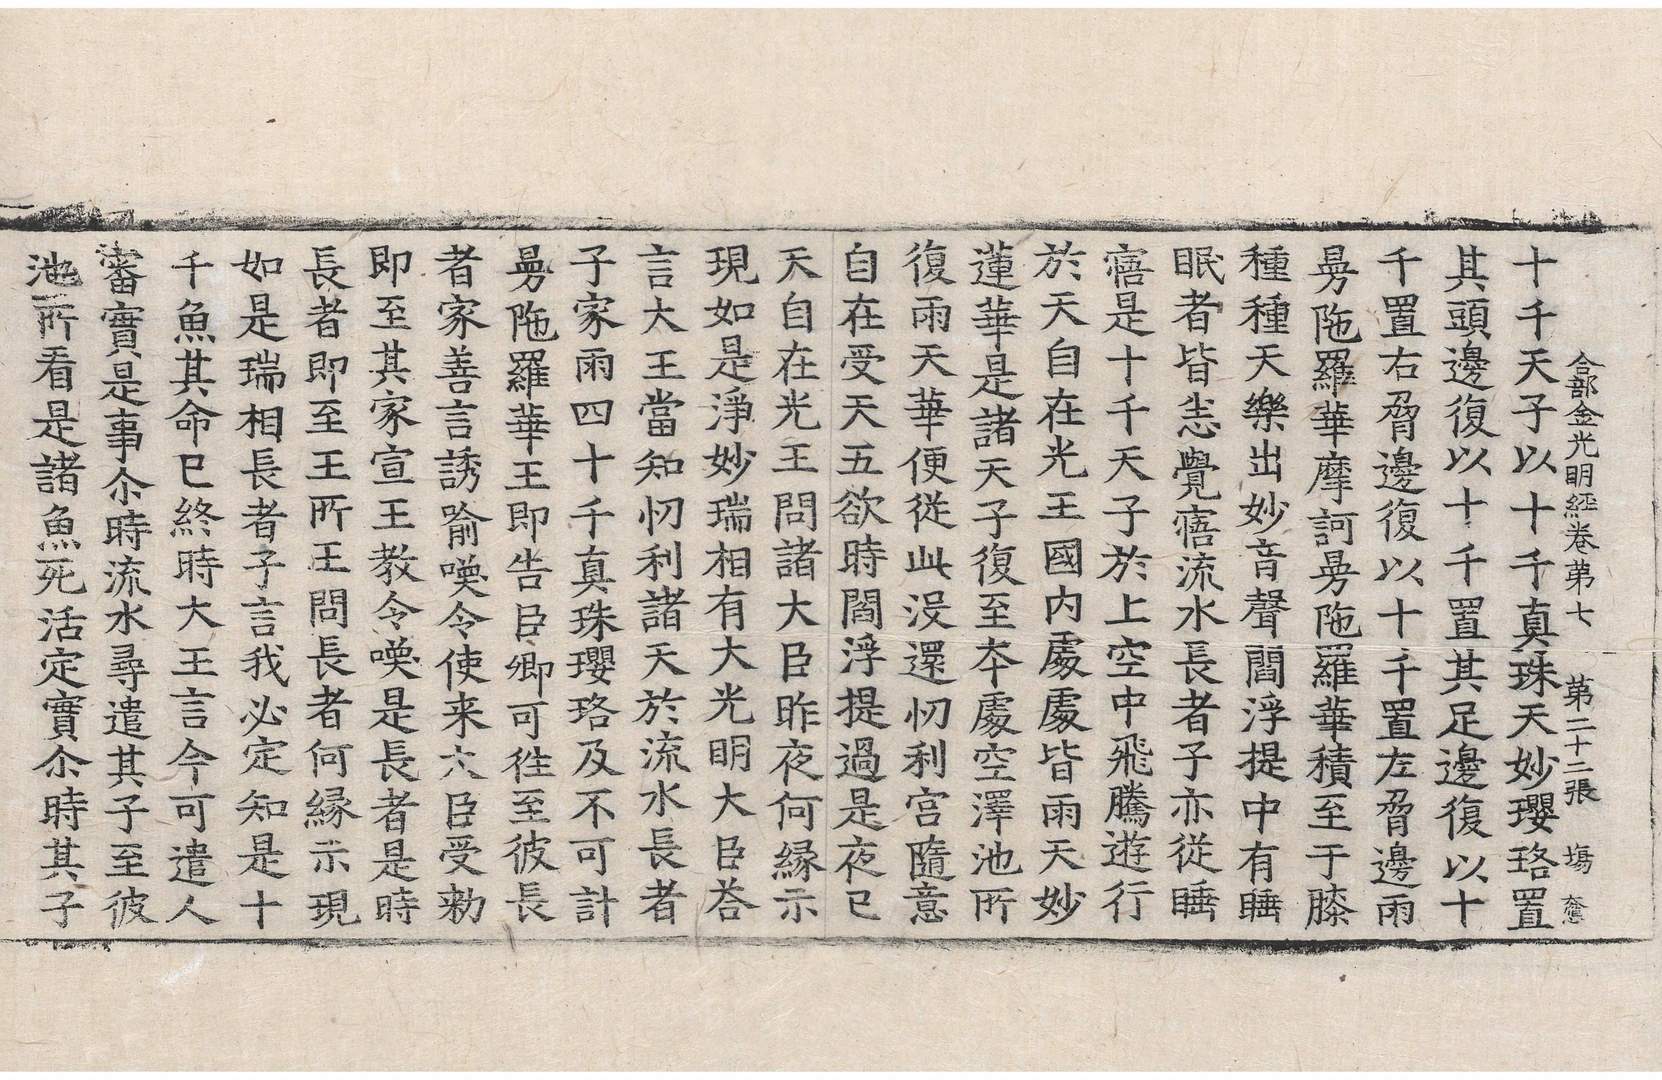 合部金光明經卷第七 第二十二張 場
十千天子以十千真珠天妙瓔珞置
其頭邊復以十千置其足邊復以十
千置右脅邊復以十千置左脅邊雨
曼陁羅華摩訶曼陁羅華積至于膝
種種天樂出妙音聲閻浮提中有睡
眠者皆悉覺寤流水長者子亦從睡
寤是十千天子於上空中飛騰遊行
於天自在光王國内處處皆雨天妙
蓮華是諸天子復至本處空澤池所
復雨天華便從此没還忉利宫隨意
自在受天五欲時閻浮提過是夜已
天自在光王問諸大臣昨夜何緣示
現如是淨妙瑞相有大光明大臣荅
言大王當知忉利諸天於流水長者
子家雨四十千真珠瓔珞及不可計
曼陁羅華王即告臣卿可徃至彼長
者家善言誘喻喚令使来大臣受勑
即至其家宣王教令喚是長者是時
長者即至王所王問長者何緣示現
如是瑞相長者子言我必定知是十
千魚其命已終時大王言今可遣人
審實是事尒時流水尋遣其子至彼
池所看是諸魚死活定實尒時其子